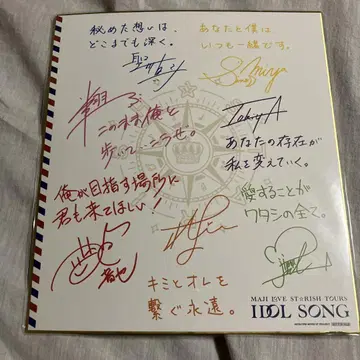 秘めた想いは、
どこまでも深く。
あなたと僕は
いつも一緒です。
このまま俺と
歩いてこうぜ。
Tokiya
あなたの存在が
私を変えていく。
俺が目指す場所に
君も来てほしい!
愛することが
ワタシの全て。
音也
キミとオレを
繋ぐ永遠。
MAJI LOVE ST☆RISH TOURS
IDOL SONG